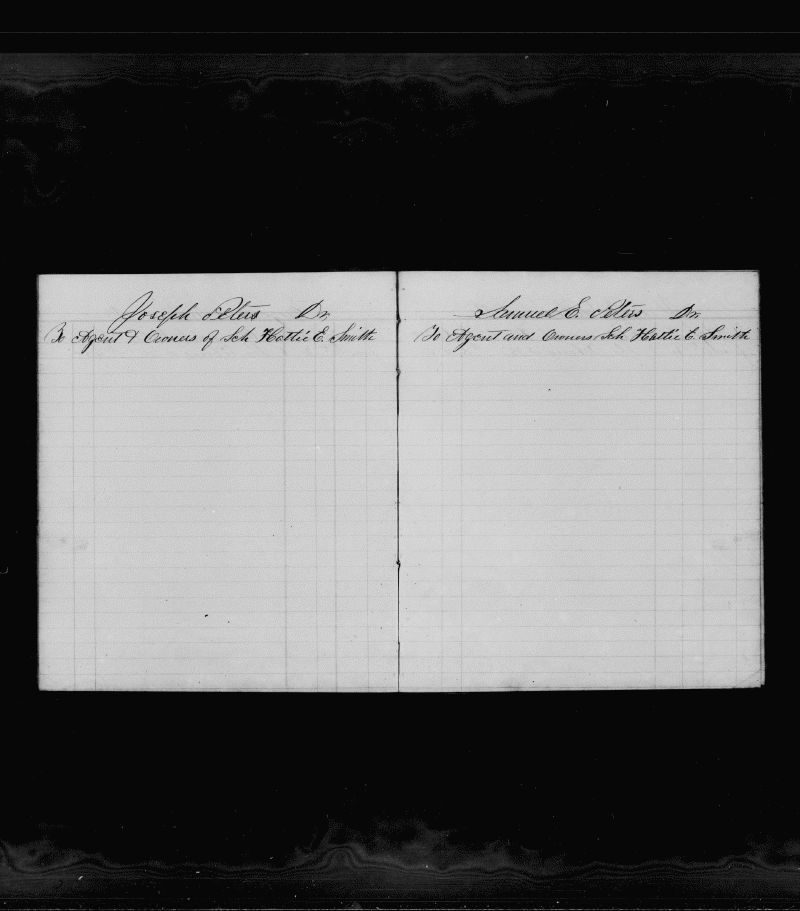 Joseph Peters Dr.
To Agent & Owners of Sch Hattie E. Smith
Samuel E. Peters Dr.
To Agent and Owners Sch Hattie E. Smith